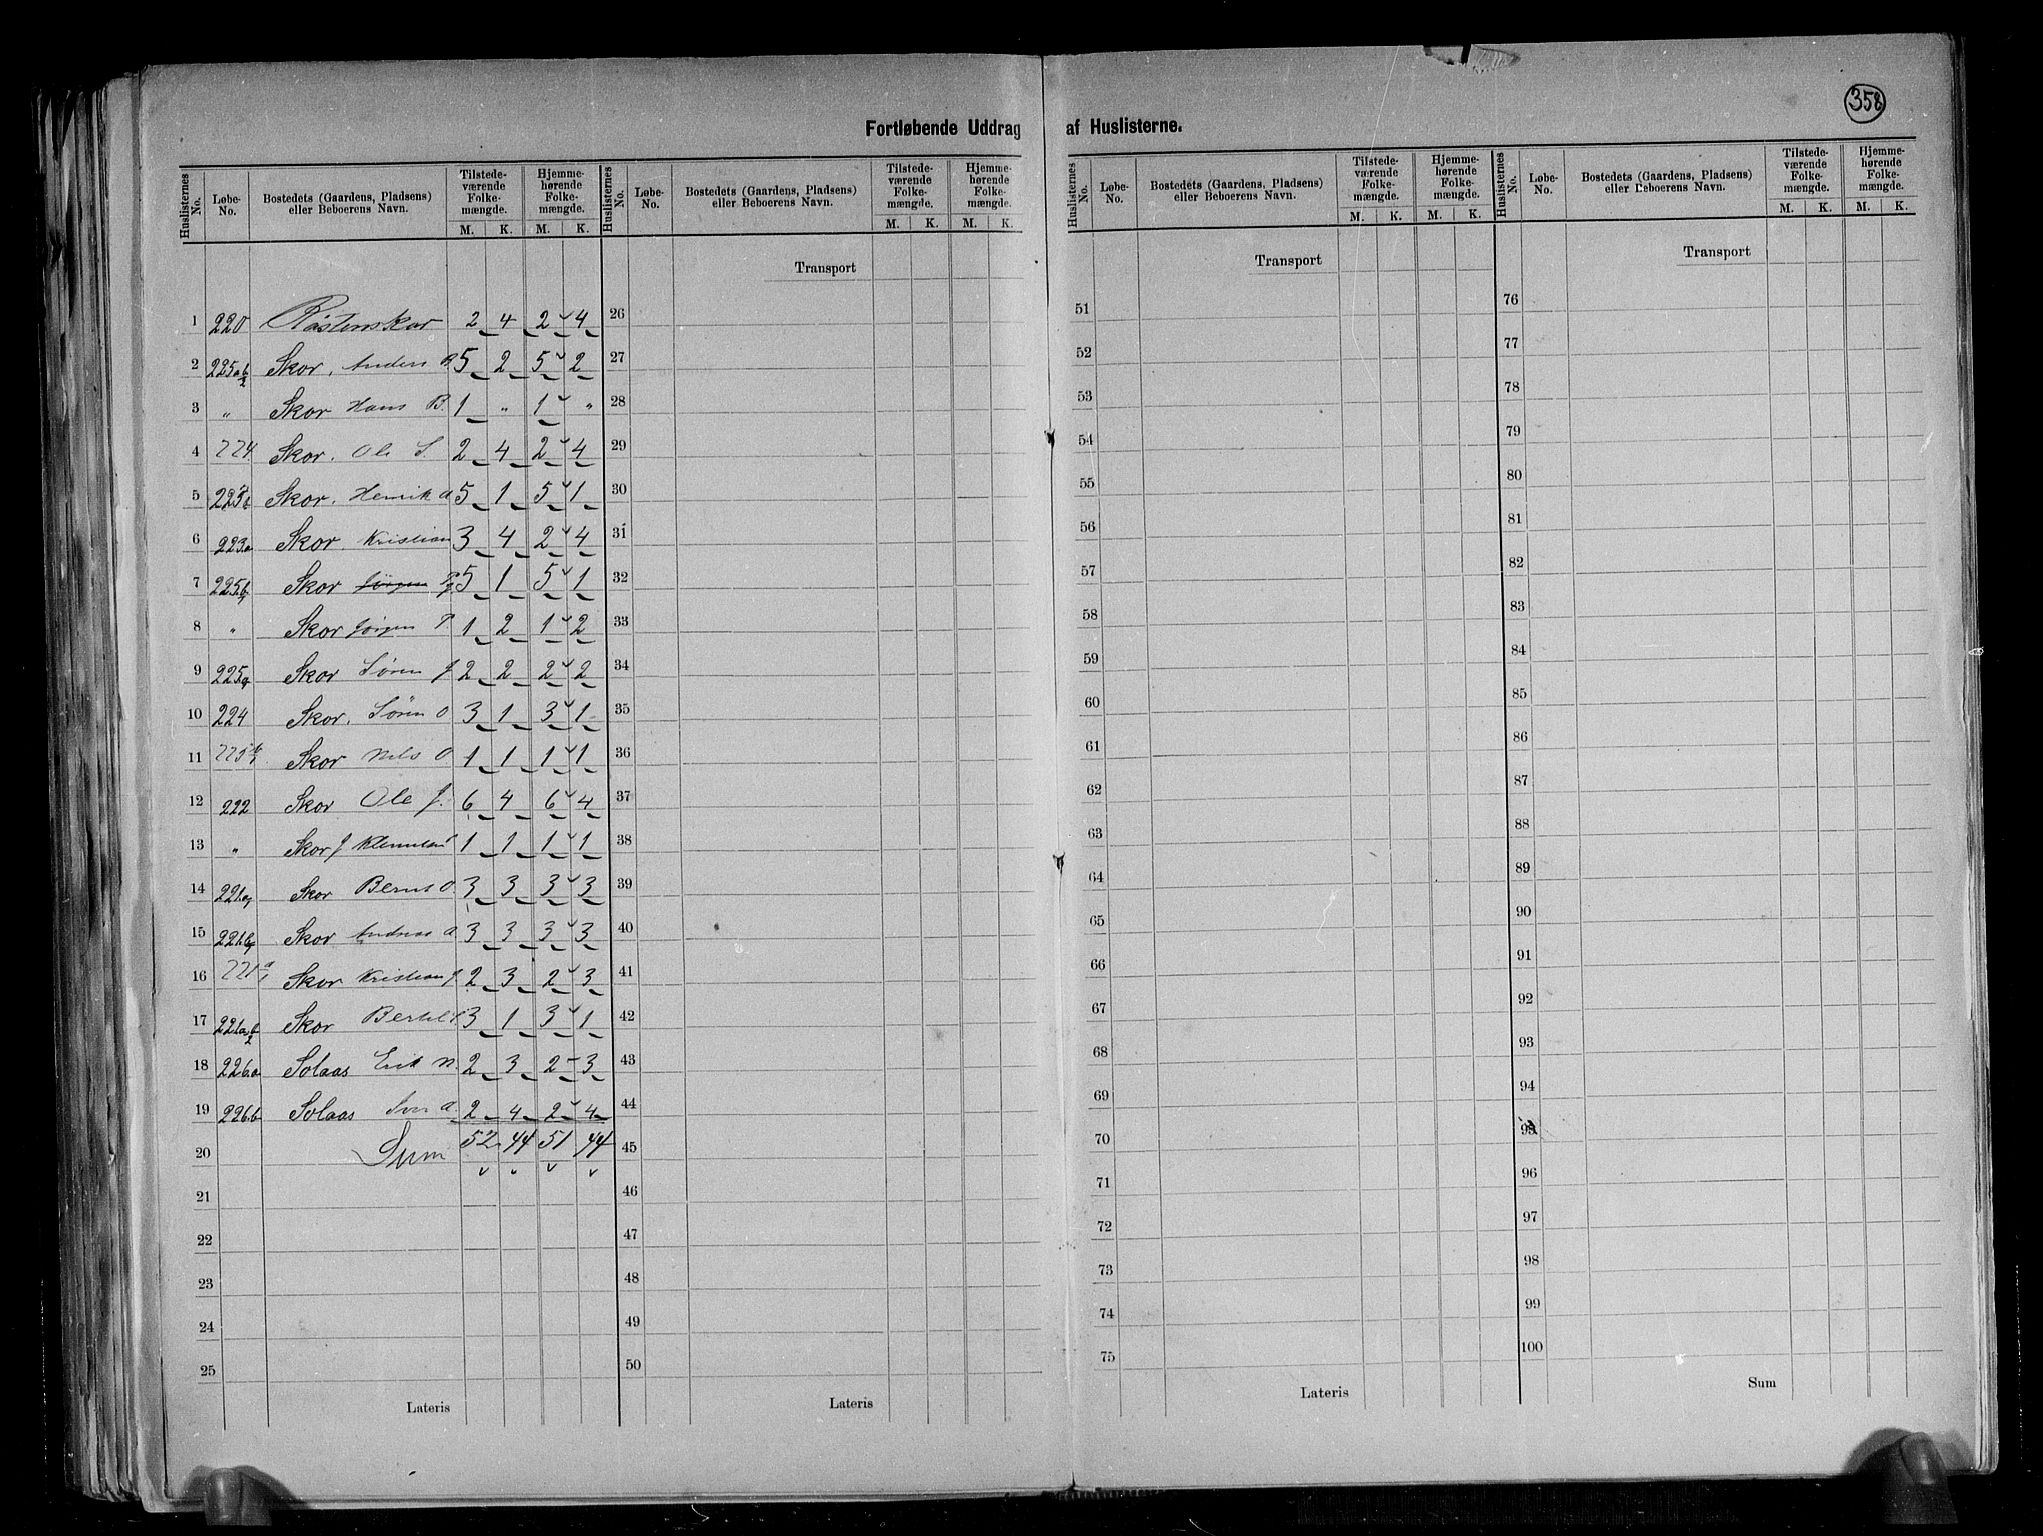 358
Fortløbende Uddrag af Huslisterne.
Huslisternes No. Løbe-No. Bostedets (Gaardens, Pladsens) eller Beboerens Navn. Tilstedeværende Folkemængde. M. K. Hjemmehørende Folkemængde. M. K.
Huslisternes No. Løbe-No. Bostedets (Gaardens, Pladsens) eller Beboerens Navn. Tilstedeværende Folkemængde. M. K. Hjemmehørende Folkemængde. M. K.
Huslisternes No. Løbe-No. Bostedets (Gaardens, Pladsens) eller Beboerens Navn. Tilstedeværende Folkemængde. M. K. Hjemmehørende Folkemængde. M. K.
Huslisternes No. Løbe-No. Bostedets (Gaardens, Pladsens) eller Beboerens Navn. Tilstedeværende Folkemængde. M. K. Hjemmehørende Folkemængde. M. K.
1 220 2 4 2 4
2 225 Skor, Anders 5 2 5 2
3 " Skor Hans B. 1 " 1 "
4 224. Skor. Ole S. 2 4 2 4
5 Skor. Henrik 5 1 5 1
6 223.a Skor. Kristian 3 4 2 4
7 225 Skor 5 1 5 1
8 " Skor Jörgen P. 1 2 1 2
9 225 Skor Sören J 2 2 2 2
10 224 Skor. Sören O 3 1 3 1
11 225 Skor Nils O 1 1 1 1
12 222 Skor Ole J. 6 4 6 4
13 " Skor J 1 1 1 1
14 221 Skor Bernt O. 3 3 3 3
15 221 Skor Andreas 3 3 3 3
16 221 Skor Kristian J. 2 3 2 3
17 221 Skor Bertil 3 1 3 1
18 226.a Solaas Erik N. 2 3 2 3
19 226.b Solaas 2 4 2 4
20 Sum 52 44 51 44
21
22
23
24
25
Lateris
Transport
26
27
28
29
30
31
32
33
34
35
36
37
38
39
40
41
42
43
44
45
46
47
48
49
50
Lateris
Transport
51
52
53
54
55
56
57
58
59
60
61
62
63
64
65
66
67
68
69
70
71
72
73
74
75
Lateris
Transport
76
77
78
79
80
81
82
83
84
85
86
87
88
89
90
91
92
93
94
95
96
97
98
99
100
Sum